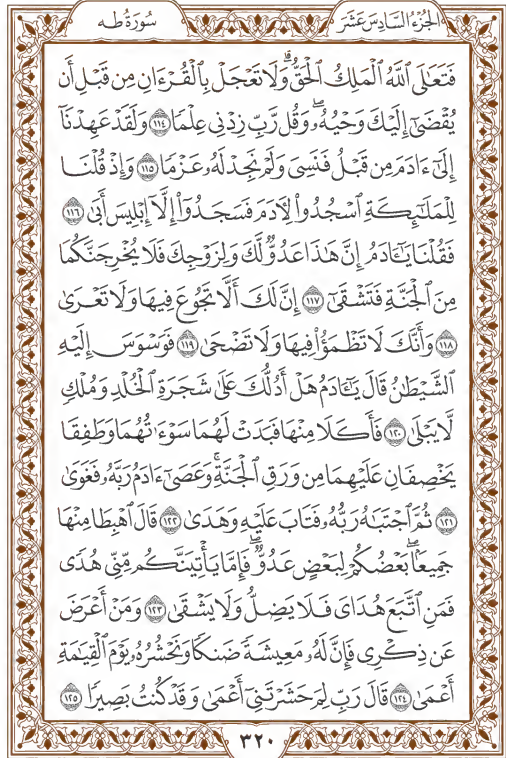 الجزء السادس عشر
سورة طه
فَتَعَٰلَى ٱللَّهُ ٱلْمَلِكُ ٱلْحَقُّ ۗ وَلَا تَعْجَلْ بِٱلْقُرْءَانِ مِن قَبْلِ أَن
يُقْضَىٰٓ إِلَيْكَ وَحْيُهُۥ ۖ وَقُل رَّبِّ زِدْنِى عِلْمًا ١١٤ وَلَقَدْ عَهِدْنَآ
إِلَىٰٓ ءَادَمَ مِن قَبْلُ فَنَسِىَ وَلَمْ نَجِدْ لَهُۥ عَزْمًا ١١٥ وَإِذْ قُلْنَا
لِلْمَلَٰٓئِكَةِ ٱسْجُدُوا۟ لِءَادَمَ فَسَجَدُوٓا۟ إِلَّآ إِبْلِيسَ أَبَىٰ ١١٦
فَقُلْنَا يَٰٓـَٔادَمُ إِنَّ هَٰذَا عَدُوٌّ لَّكَ وَلِزَوْجِكَ فَلَا يُخْرِجَنَّكُمَا
مِنَ ٱلْجَنَّةِ فَتَشْقَىٰٓ ١١٧ إِنَّ لَكَ أَلَّا تَجُوعَ فِيهَا وَلَا تَعْرَىٰ
١١٨ وَأَنَّكَ لَا تَظْمَؤُا۟ فِيهَا وَلَا تَضْحَىٰ ١١٩ فَوَسْوَسَ إِلَيْهِ
ٱلشَّيْطَٰنُ قَالَ يَٰٓـَٔادَمُ هَلْ أَدُلُّكَ عَلَىٰ شَجَرَةِ ٱلْخُلْدِ وَمُلْكٍ
لَّا يَبْلَىٰ ١٢٠ فَأَكَلَا مِنْهَا فَبَدَتْ لَهُمَا سَوْءَٰتُهُمَا وَطَفِقَا
يَخْصِفَانِ عَلَيْهِمَا مِن وَرَقِ ٱلْجَنَّةِ ۚ وَعَصَىٰٓ ءَادَمُ رَبَّهُۥ فَغَوَىٰ
١٢١ ثُمَّ ٱجْتَبَٰهُ رَبُّهُۥ فَتَابَ عَلَيْهِ وَهَدَىٰ ١٢٢ قَالَ ٱهْبِطَا مِنْهَا
جَمِيعًۢا ۖ بَعْضُكُمْ لِبَعْضٍ عَدُوٌّ ۖ فَإِمَّا يَأْتِيَنَّكُم مِّنِّى هُدًى
فَمَنِ ٱتَّبَعَ هُدَاىَ فَلَا يَضِلُّ وَلَا يَشْقَىٰ ١٢٣ وَمَنْ أَعْرَضَ
عَن ذِكْرِى فَإِنَّ لَهُۥ مَعِيشَةً ضَنكًا وَنَحْشُرُهُۥ يَوْمَ ٱلْقِيَٰمَةِ
أَعْمَىٰ ١٢٤ قَالَ رَبِّ لِمَ حَشَرْتَنِىٓ أَعْمَىٰ وَقَدْ كُنتُ بَصِيرًا ١٢٥
٣٢٠